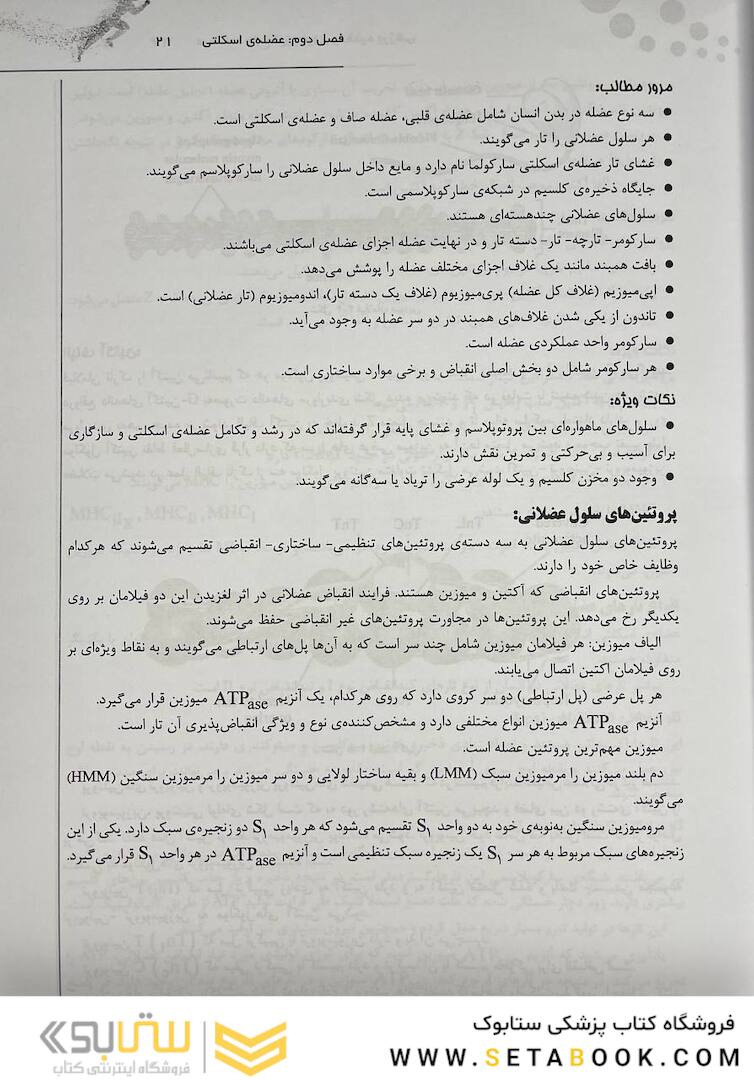 فصل دوم: عضله‌ی اسکلتی ۲۱
مرور مطالب:
● سه نوع عضله در بدن انسان شامل عضله‌ی قلبی، عضله صاف و عضله‌ی اسکلتی است.
● هر سلول عضلانی را تار می‌گویند.
● غشای تار عضله‌ی اسکلتی سارکولما نام دارد و مایع داخل سلول عضلانی را سارکوپلاسم می‌گویند.
● جایگاه ذخیره‌ی کلسیم در شبکه‌ی سارکوپلاسمی است.
● سلول‌های عضلانی چندهسته‌ای هستند.
● سارکومر- تارچه- تار- دسته تار و در نهایت عضله اجزای عضله‌ی اسکلتی می‌باشند.
● بافت همبند مانند یک غلاف اجزای مختلف عضله را پوشش می‌دهد.
● اپی‌میوزیم (غلاف کل عضله) پری‌میوزیوم (غلاف یک دسته تار)، اندومیوزیوم (تار عضلانی) است.
● تاندون از یکی شدن غلاف‌های همبند در دو سر عضله به وجود می‌آید.
● سارکومر واحد عملکردی عضله است.
● هر سارکومر شامل دو بخش اصلی انقباض و برخی موارد ساختاری است.
نکات ویژه:
● سلول‌های ماهواره‌ای بین پروتوپلاسم و غشای پایه قرار گرفته‌اند که در رشد و تکامل عضله‌ی اسکلتی و سازگاری
برای آسیب و بی‌حرکتی و تمرین نقش دارند.
● وجود دو مخزن کلسیم و یک لوله عرضی را تریاد یا سه‌گانه می‌گویند.
پروتئین‌های سلول عضلانی:
پروتئین‌های سلول عضلانی به سه دسته‌ی پروتئین‌های تنظیمی- ساختاری- انقباضی تقسیم می‌شوند که هرکدام
وظایف خاص خود را دارند.
پروتئین‌های انقباضی که آکتین و میوزین هستند. فرایند انقباض عضلانی در اثر لغزیدن این دو فیلامان بر روی
یکدیگر رخ می‌دهد. این پروتئین‌ها در مجاورت پروتئین‌های غیر انقباضی حفظ می‌شوند.
الیاف میوزین: هر فیلامان میوزین شامل چند سر است که به آن‌ها پل‌های ارتباطی می‌گویند و به نقاط ویژه‌ای بر
روی فیلامان اکتین اتصال می‌یابند.
هر پل عرضی (پل ارتباطی) دو سر کروی دارد که روی هرکدام، یک آنزیم ATPase میوزین قرار می‌گیرد.
آنزیم ATPase میوزین انواع مختلفی دارد و مشخص‌کننده‌ی نوع و ویژگی انقباض‌پذیری آن تار است.
میوزین مهم‌ترین پروتئین عضله است.
دم بلند میوزین را مرمیوزین سبک (LMM) و بقیه ساختار لولایی و دو سر میوزین را مرمیوزین سنگین (HMM)
می‌گویند.
مرومیوزین سنگین به‌نوبه‌ی خود به دو واحد S۱ تقسیم می‌شود که هر واحد S۱ دو زنجیره‌ی سبک دارد. یکی از این
زنجیره‌های سبک مربوط به هر سر S۱ یک زنجیره سبک تنظیمی است و آنزیم ATPase در هر واحد S۱ قرار می‌گیرد.
فروشگاه کتاب پزشکی ستابوک
WWW.SETABOOK.COM
ستابوک
فروشگاه اینترنتی کتاب